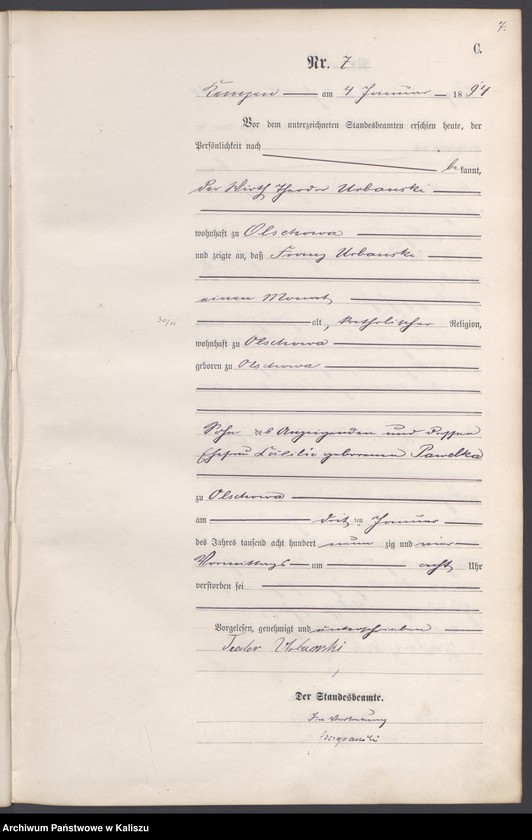 7.
C.
Nr. 7
Kempen am 4 Januar 1894
Vor dem unterzeichneten Standesbeamten erschien heute, der
Persönlichkeit nach
bekannt,
der Wirth Theodor Urbanski
wohnhaft zu Olschowa
und zeigte an, daß Franz Urbanski
einen Monat
30/11
alt, katholischer Religion,
wohnhaft zu Olschowa
geboren zu Olschowa
Sohn des Anzeigenden und dessen
Ehefrau Cäcilie geborenen Pawelka
zu Olschowa
am drit ten Januar
des Jahres tausend acht hundert neun zig und vier
Vormittags um acht Uhr
verstorben sei
Vorgelesen, genehmigt und unterschrieben
Teodor Urbanski
Der Standesbeamte.
In Vertretung
Archiwum Państwowe w Kaliszu